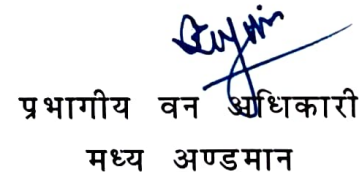 प्रभागीय वन अधिकारी
मध्य अण्डमान